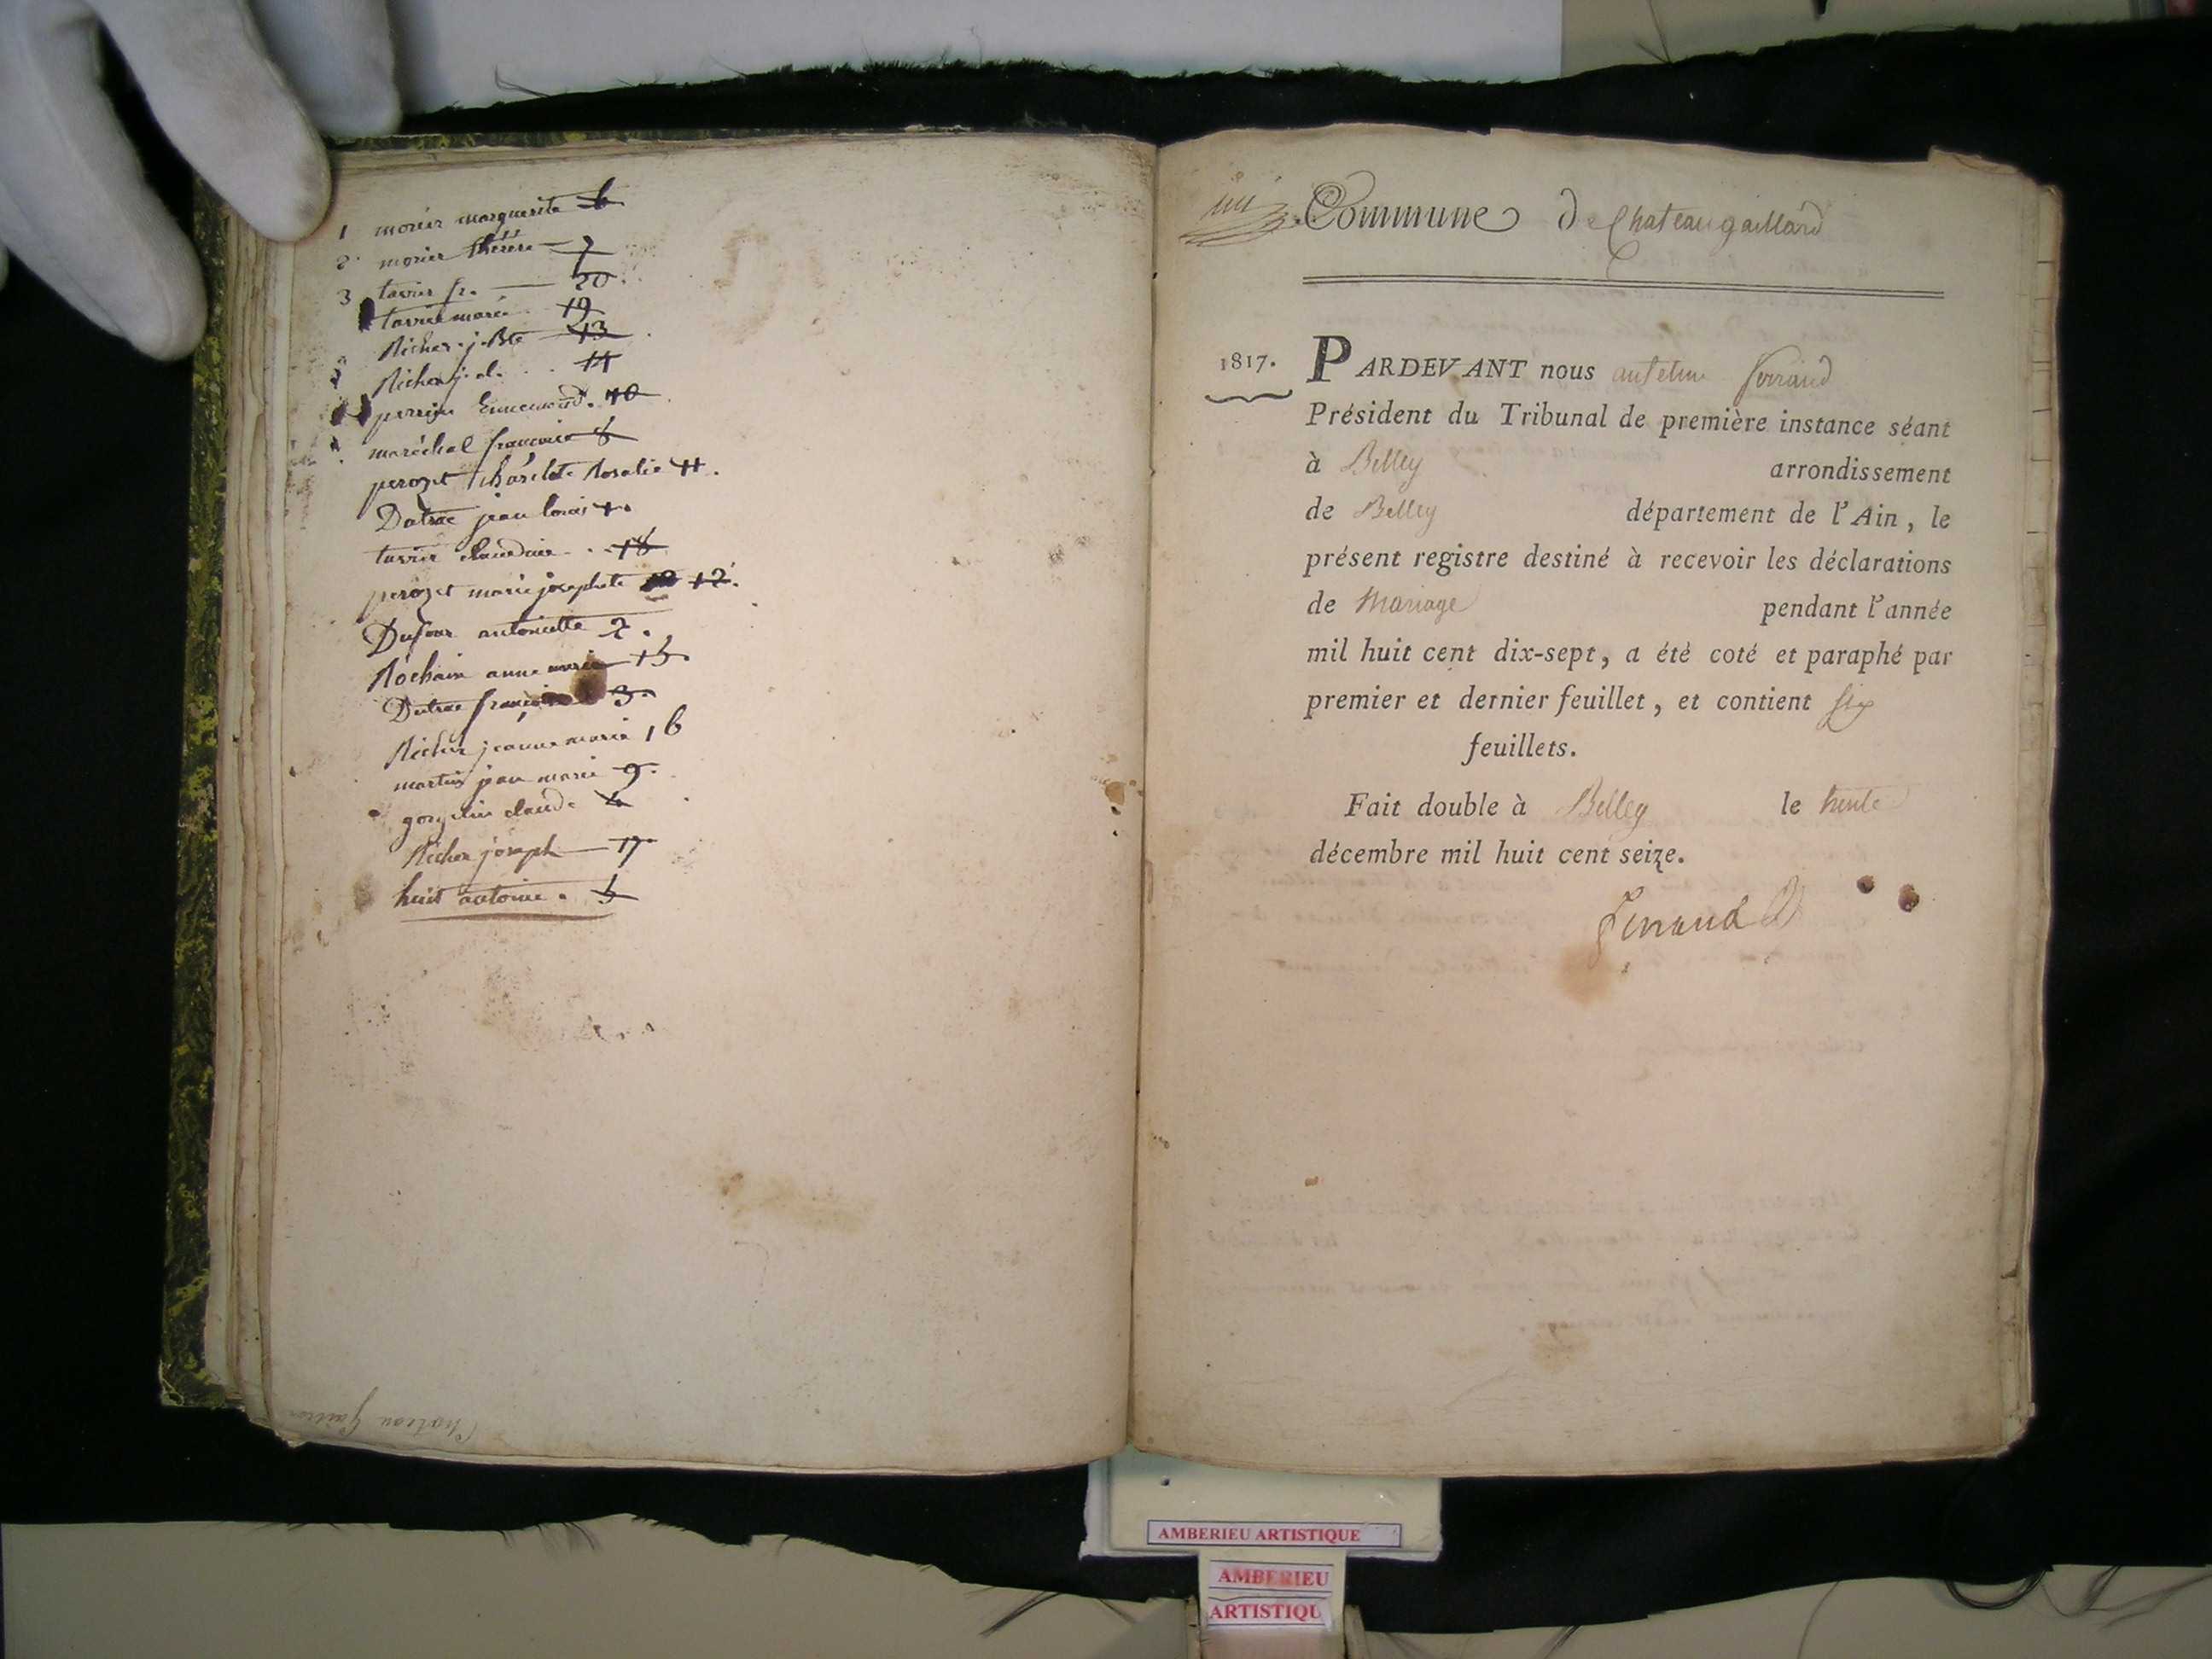 1 morier marguerite 6
2 morier thérèse 7
3 tavier fr. 20.
tavier marie 19
Richer j. Bte 13
Richer j. cl. 14
perrin Ennemond. 10
maréchal françoise 8
perozet charlote Rosalie 11.
Dutrac jean louis 1.
tavier claudine . . 18
perozet marie josephte 12.
Dufour antoinette 2.
Rochain anne marie 15.
Dutrac 3.
Richer jeanne marie 16
martin jean marie 9.
claude 4
Richer joseph 17
huit antoine . 5
Chateau
Commune de Chateaugaillard
1817. PARDEVANT nous anselme ferrand
Président du Tribunal de première instance séant
à Belley arrondissement
de Belley département de l'Ain, le
présent registre destiné à recevoir les déclarations
de Mariage pendant l'année
mil huit cent dix-sept, a été coté et paraphé par
premier et dernier feuillet, et contient six
feuillets.
Fait double à Belley le trente
décembre mil huit cent seize.
ferrand
AMBERIEU ARTISTIQUE
AMBERIEU
ARTISTIQU